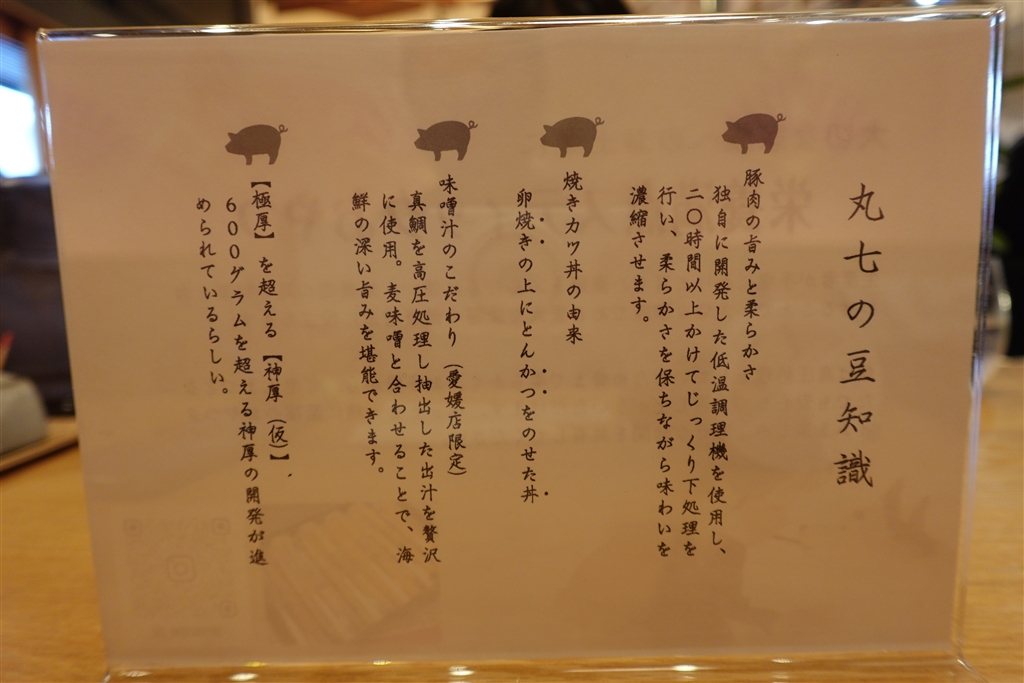 丸七の豆知識
豚肉の旨みと柔らかさ
独自に開発した低温調理機を使用し、
二〇時間以上かけてじっくり下処理を
行い、柔らかさを保ちながら味わいを
濃縮させます。
焼きカツ丼の由来
卵焼きの上にとんかつをのせた丼
味噌汁のこだわり（愛媛店限定）
真鯛を高圧処理し抽出した出汁を贅沢
に使用。麦味噌と合わせることで、海
鮮の深い旨みを堪能できます。
【極厚】を超える【神厚（仮）】
600グラムを超える神厚の開発が進
められているらしい。